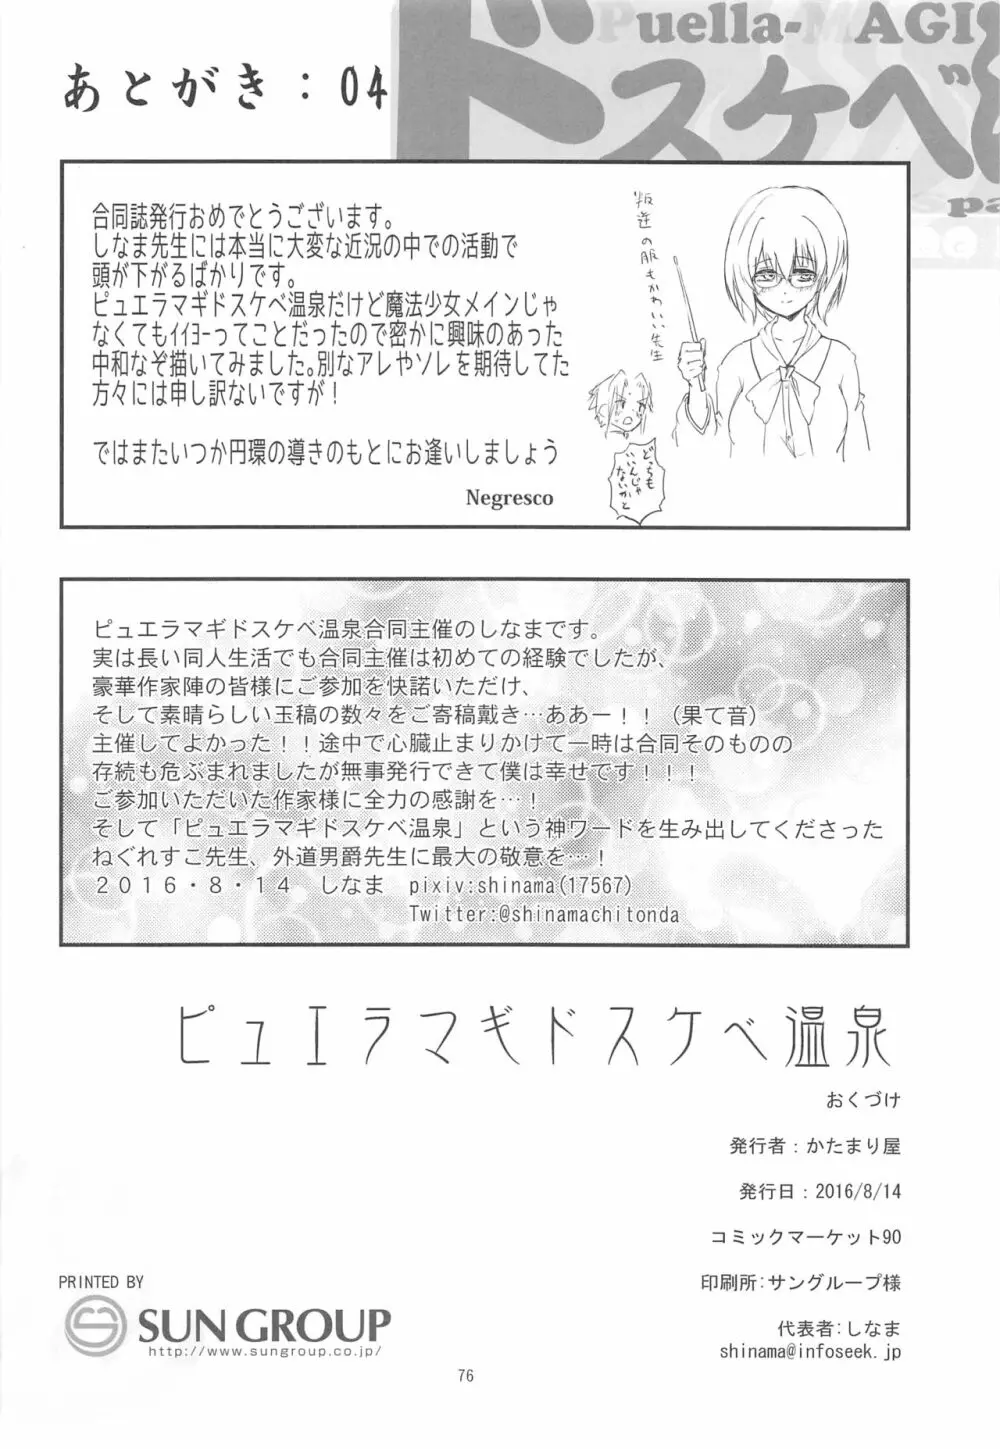 Puella-MAGI
ドスケベ
Spa
あとがき：04
合同誌発行おめでとうございます。
しなま先生には本当に大変な近況の中での活動で
頭が下がるばかりです。
ピュエラマギドスケベ温泉だけど魔法少女メインじゃ
なくてもｲｲﾖｰってことだったので密かに興味のあった
中和なぞ描いてみました。別なアレやソレを期待してた
方々には申し訳ないですが！
ではまたいつか円環の導きのもとにお逢いしましょう
Negresco
叛逆の服もかわいい先生
どっちも
いいんじゃ
ないかと
ピュエラマギドスケベ温泉合同主催のしなまです。
実は長い同人生活でも合同主催は初めての経験でしたが、
豪華作家陣の皆様にご参加を快諾いただけ、
そして素晴らしい玉稿の数々をご寄稿戴き…ああー！！（果て音）
主催してよかった！！途中で心臓止まりかけて一時は合同そのものの
存続も危ぶまれましたが無事発行できて僕は幸せです！！！
ご参加いただいた作家様に全力の感謝を…！
そして「ピュエラマギドスケベ温泉」という神ワードを生み出してくださった
ねぐれすこ先生、外道男爵先生に最大の敬意を…！
２０１６・８・１４　しなま　pixiv:shinama(17567)
Twitter:@shinamachitonda
ピュエラマギドスケベ温泉
おくづけ
発行者：かたまり屋
発行日：2016/8/14
コミックマーケット90
印刷所：サングループ様
代表者：しなま
shinama@infoseek.jp
PRINTED BY
SUN GROUP
http://www.sungroup.co.jp/
76